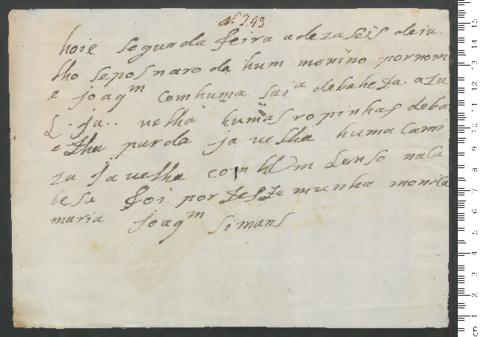 N. 243
hoie segunda feira adezaseis deiu
lho sepos na roda hum menino por nom
e joaqm com huma saia debaheta azu
l ja velha humas ropinhas deba
etha parda ja velha huma cami
za ja velha com hum lenso na ca
besa foi por testemunha monica
maria joaqm simans